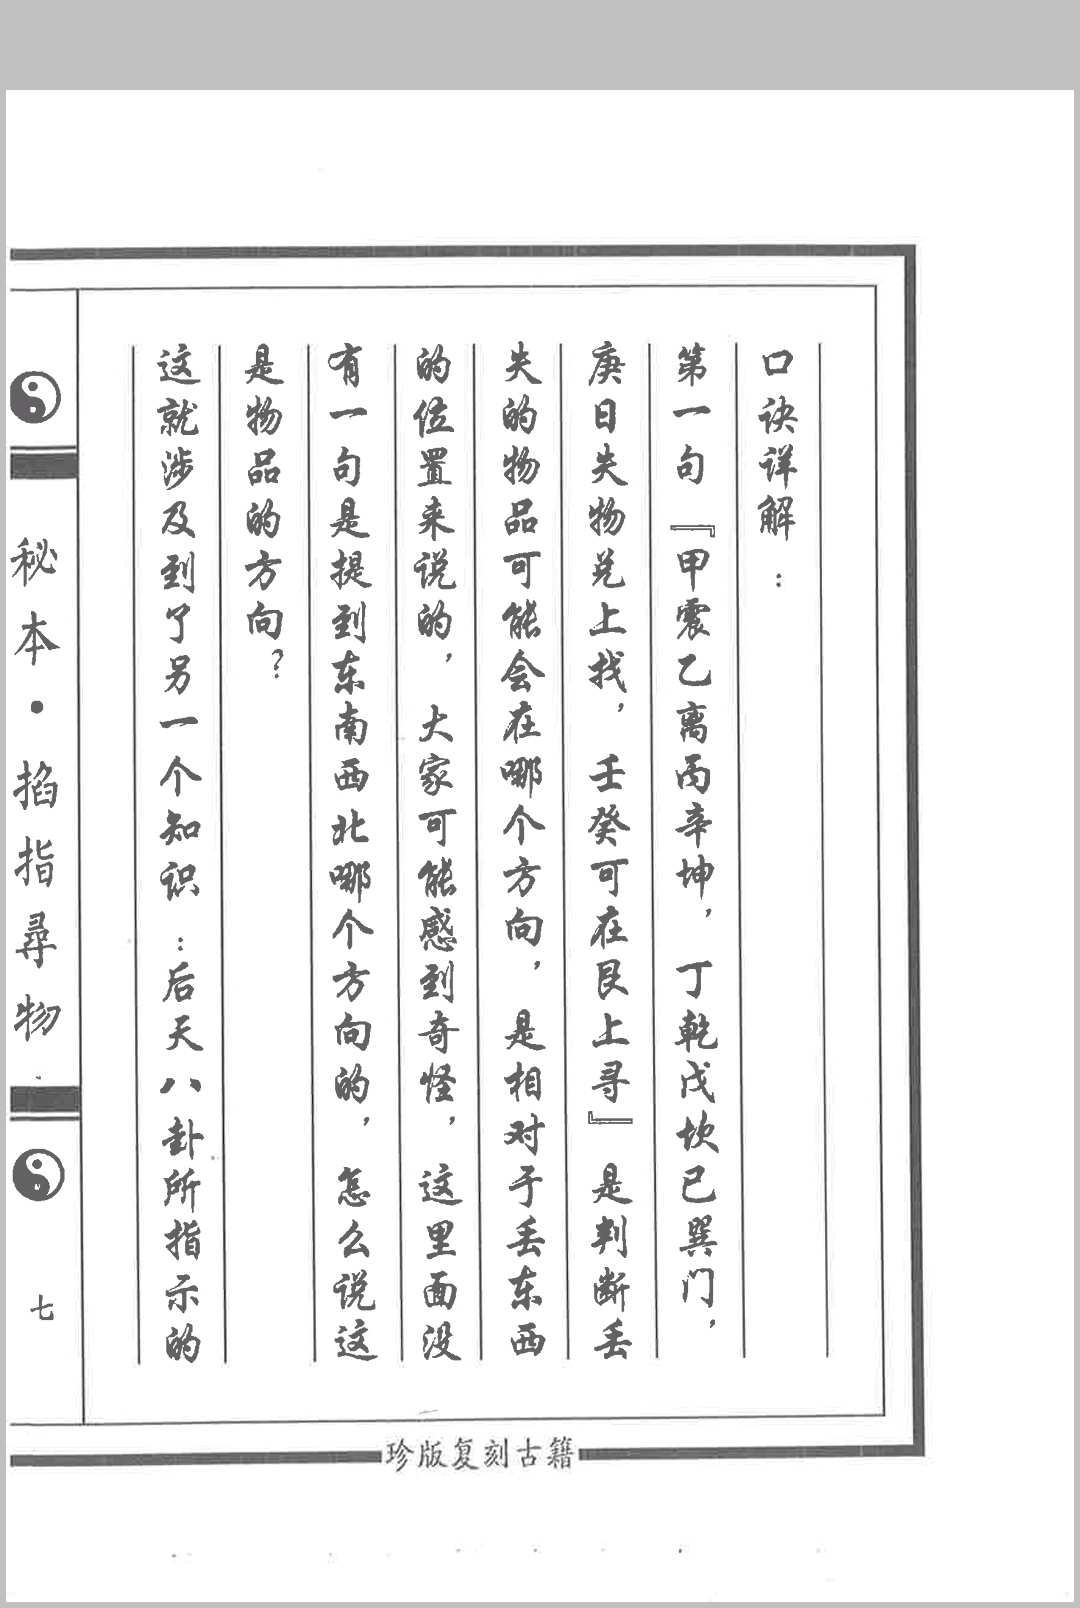 口诀详解：
第一句『甲震乙离丙辛坤，丁乾戊坎已巽门，
庚日失物兑上找，壬癸可在艮上寻』是判断丢
失的物品可能会在哪个方向，是相对于丢东西
的位置来说的，大家可能感到奇怪，这里面没
有一句是提到东南西北哪个方向的，怎么说这
是物品的方向？
这就涉及到了另一个知识：后天八卦所指示的
秘本·掐指尋物
七
珍版复刻古籍